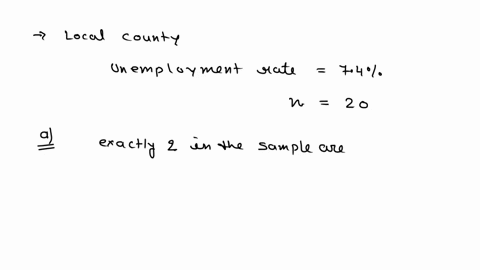 → Local county
Unemployment rate = 7.4%
n = 20
a) exactly 2 in the sample are